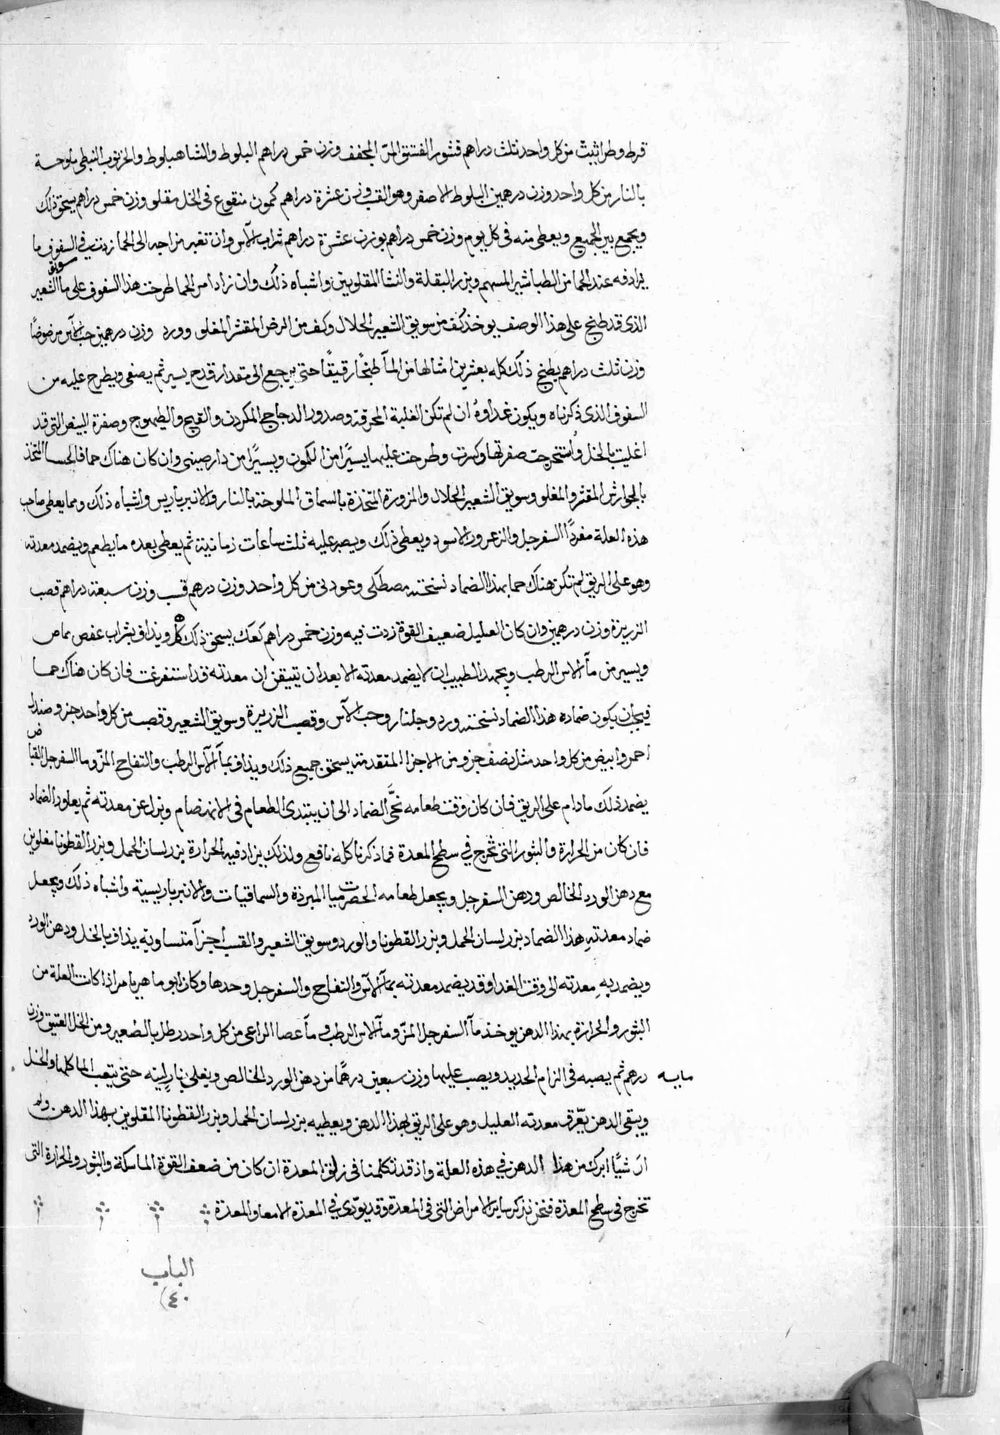 قرط وطراثيث من كل واحد ثلث دراهم قشور الفستق المر المجفف وزن خمس دراهم البلوط والشاهبلوط والخرنوب النبطي ملوحة
بالنار من كل واحد وزن درهمين البلوط الاصفر وهو القب وزن عشرة دراهم كمون منقوع في الخل مقلو وزن خمس دراهم يسحق ذلك
ويجمع بين الجميع ويعطى منه في كل يوم وزن خمس دراهم بوزن عشرة دراهم شراب الآس وان تغير مزاجه الى الحما زيدت في السفوف ما
يرادفه عند الحما من الطباشير المسهم وبزر البقلة والنشا المقلوين واشباه ذلك وان زاد امر الحما طرحت هذا السفوف على ما سويق الشعير
الذي قد طبخ على هذا الوصف يوخذ كف من سويق الشعير الحلال وكف من الرض المقشر المغلو وورد وزن درهمين حب الآس مرضوضا
وزن ثلث دراهم يطبخ ذلك كله بعشرين امثالها من المآ طبخا رقيقا حتى يرجع الى مقدار قدح يسير ثم يصفى ويطرح عليه من
السفوف الذي ذكرناه ويكون غداوه ان لم تكن الغلبة المحرقة وصدور الدجاج المكردن والقبج والطيهوج وصفرة البيض التي قد
اغليت بالخل واستخرجت صفرتها وكسرت وطرحت عليها يسيرا من الكمون ويسيرا من دارصيني وان كان هناك حما فالحسا المتخذ
بالجوارش المقشر والمغلو وسويق الشعير الحلال والمزورة المتخذة بالسماق الملوحة بالنار والانبرباريس واشباه ذلك ومما يعطى صاحب
هذه العلة مفردا السفرجل والزعرور الاسود ويعطى ذلك ويصبر عليه ثلث ساعات زمانية ثم يعطى بعده ما يطعم ويضمد معدته
وهو على الريق لم تكن هناك حما بهذا الضماد نسخته مصطكى وعود ني من كل واحد وزن درهم قسب وزن سبعة دراهم قصب
الزريرة وزن درهمين وان كان العليل ضعيف القوة زدت فيه وزن خمس دراهم كعك يسحق ذلك كله ويذاف بشراب عفص ماص
ويسير من مآ الاس الرطب ويجهد الطبيب ان لا يضمد معدته الا بعد ان يتيقن ان معدته قد استفرغت فان كان هناك حما
فيجب ان يكون ضماده هذا الضماد نسخته ورد وجلنار وحب الآس وقصب الزريرة وسويق الشعير وقصب من كل واحد جزو وصندل
احمر وابيض من كل واحد مثل نصف جزو من الاجزا المتقدمة يسحق جميع ذلك ويذاف بمآ الآس الرطب والتفاح المز وما السفرجل القابض
يضمد ذلك ما دام على الريق فان كان وقت طعامه نحى الضماد الى ان يبتدى الطعام في الانهضام وبزل عن معدته ثم يعاود الضماد
فان كان من الحرارة والبثور التي تخرج في سطح المعدة فما ذكرنا كله نافع ولذلك يزاد فيه الحرارة بزر لسان الحمل وبزر القطونا مغلوين
مع دهن الورد الخالص ودهن السفرجل ويجعل طعامه الحصرميات المبردة والسماقيات والانبرباريسية واشباه ذلك ويجعل
ضماد معدته هذا الضماد بزر لسان الحمل وبزر القطونا والورد وسويق الشعير والقسب اجزآ متساوية يذاف بالخل ودهن الورد
ويضمد به معدته الى وقت الغدا وقد يضمد معدته بمآ الآس والتفاح والسفرجل وحدها وكان ابو ماهر يامر اذا كانت العلة من
البثور والحرارة بهذا الدهن يوخذ مآ السفرجل المز ومآ الاس الرطب وما عصا الراعي من كل واحد رطل بالصغير ومن الخل العتيق وزن
مايه درهم ثم يصبه في الزام الحديد ويصب عليها وزن سبعين درهما من دهن الورد الخالص ويغلى بنار لينه حتى يتعب الما كلها والخل
ويبقى الدهن يعرق معدته العليل وهو على الريق لهذا الدهن ويعطيه بزر لسان الحمل وبزر القطونا المقلوين بهذا الدهن ولم
ار شيا ابرك من هذا الدهن في هذه العلة واذ قد تكلمنا في زلق المعدة ان كان من ضعف القوة الماسكة والبثور والحرارة التي
تخرج في سطح المعدة فنحن نذكر ساير الامراض التي في المعدة وقد يودى في المعدة الامعا والمعدة
الباب
٤٠